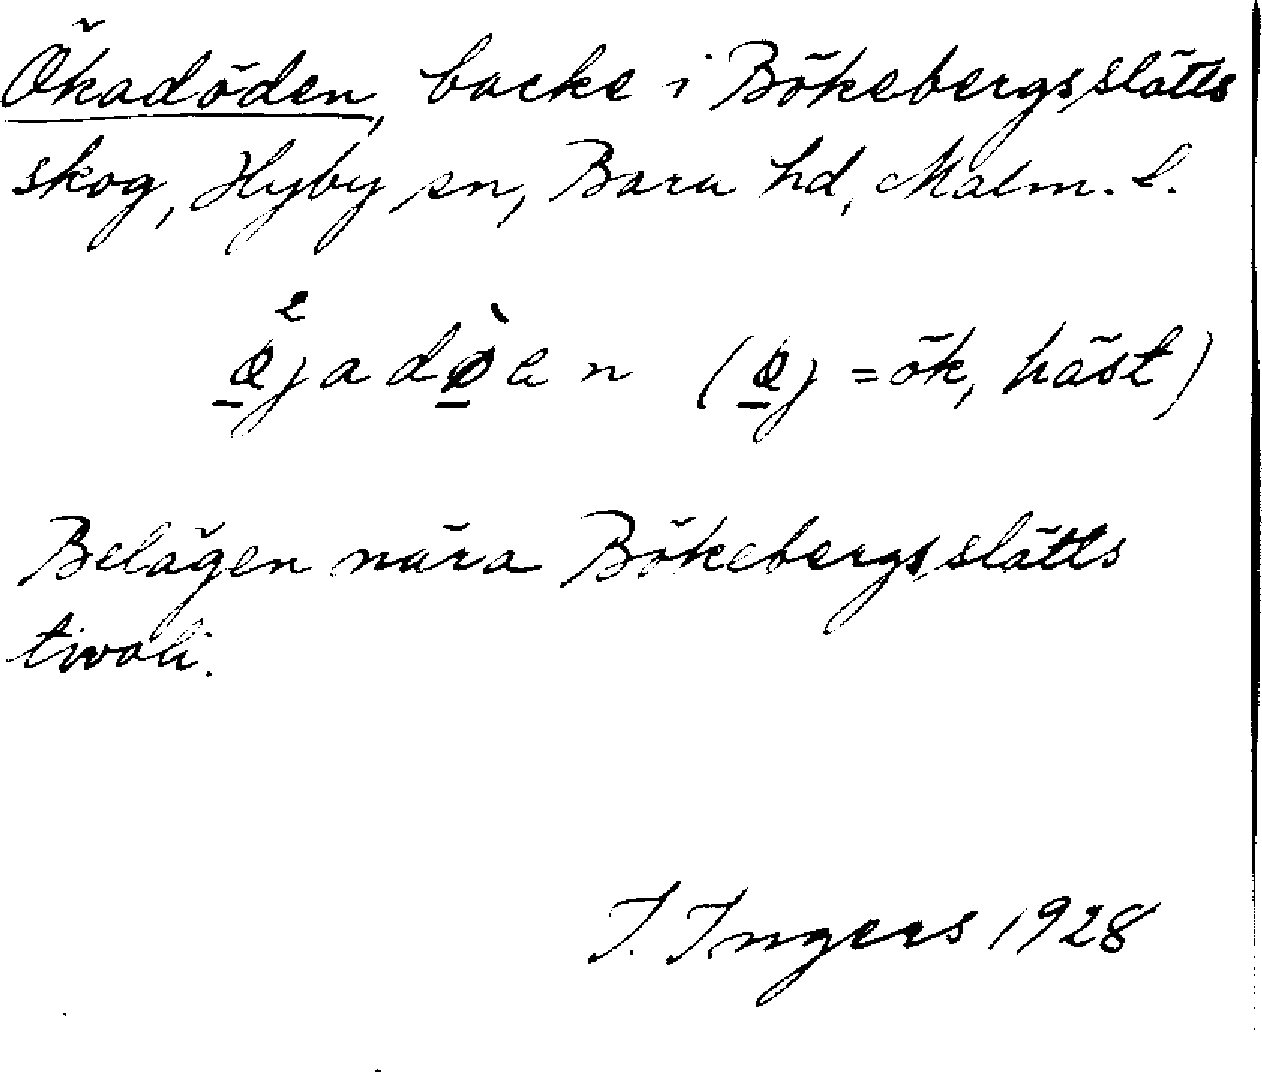 Ökadöden, backe i Bökebergsslätts
skog, Hyby sn, Bara hd, Malm. l.
ø̱jadø̱̀en (ø̱j = ök, häst)
Belägen nära Bökebergsslätts
tivoli.
I. Ingers 1928